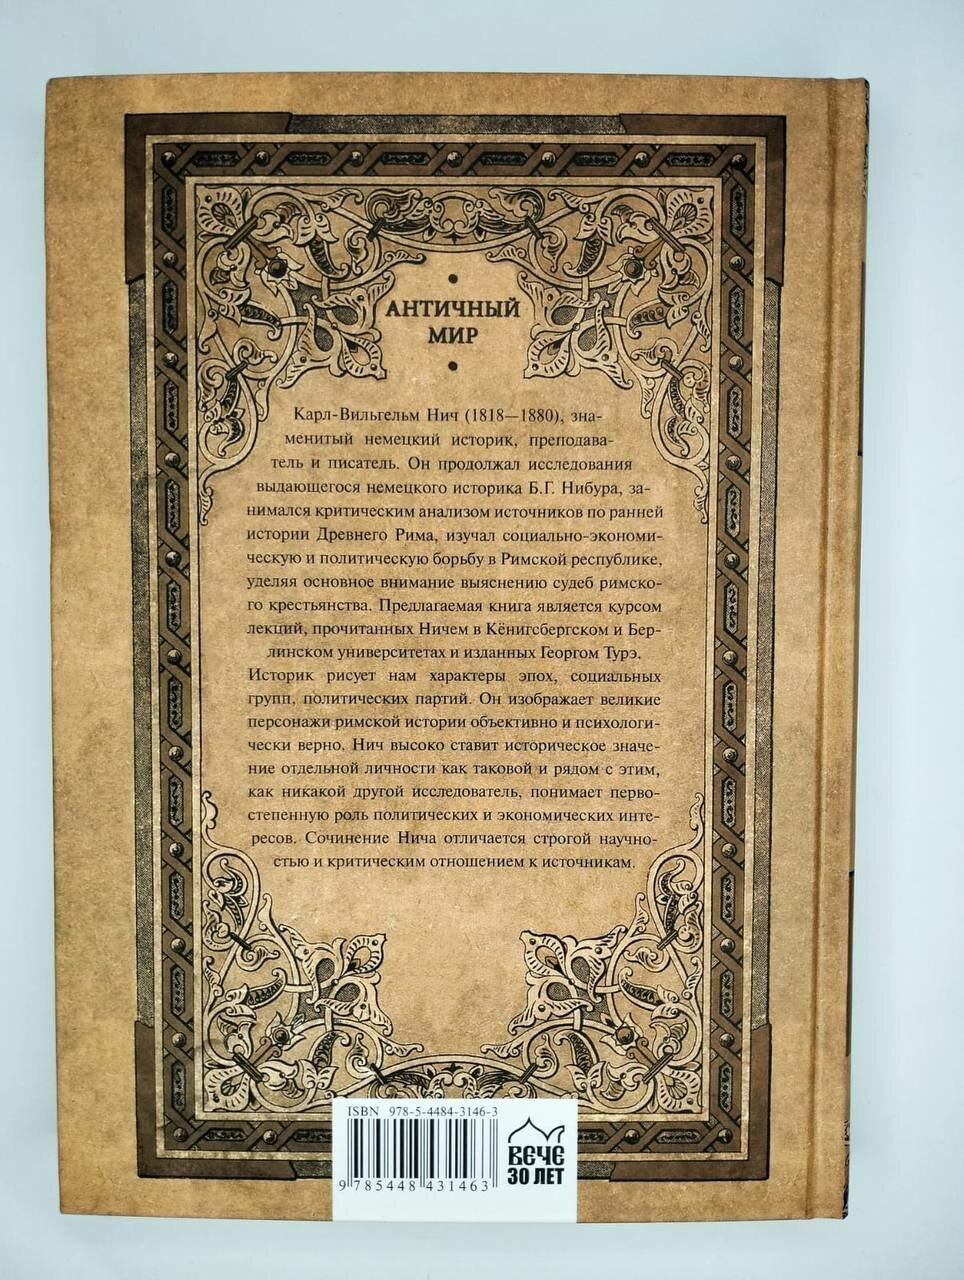 АНТИЧНЫЙ
МИР
Карл-Вильгельм Нич (1818—1880), зна-
менитый немецкий историк, преподава-
тель и писатель. Он продолжал исследования
выдающегося немецкого историка Б.Г. Нибура, за-
нимался критическим анализом источников по ранней
истории Древнего Рима, изучал социально-экономи-
ческую и политическую борьбу в Римской республике,
уделяя основное внимание выяснению судеб римско-
го крестьянства. Предлагаемая книга является курсом
лекций, прочитанных Ничем в Кёнигсбергском и Бер-
линском университетах и изданных Георгом Турэ.
Историк рисует нам характеры эпох, социальных
групп, политических партий. Он изображает великие
персонажи римской истории объективно и психологи-
чески верно. Нич высоко ставит историческое значе-
ние отдельной личности как таковой и рядом с этим,
как никакой другой исследователь, понимает перво-
степенную роль политических и экономических инте-
ресов. Сочинение Нича отличается строгой научно-
стью и критическим отношением к источникам.
ISBN 978-5-4484-3146-3
9 785448 431463
ВЕЧЕ
30 ЛЕТ